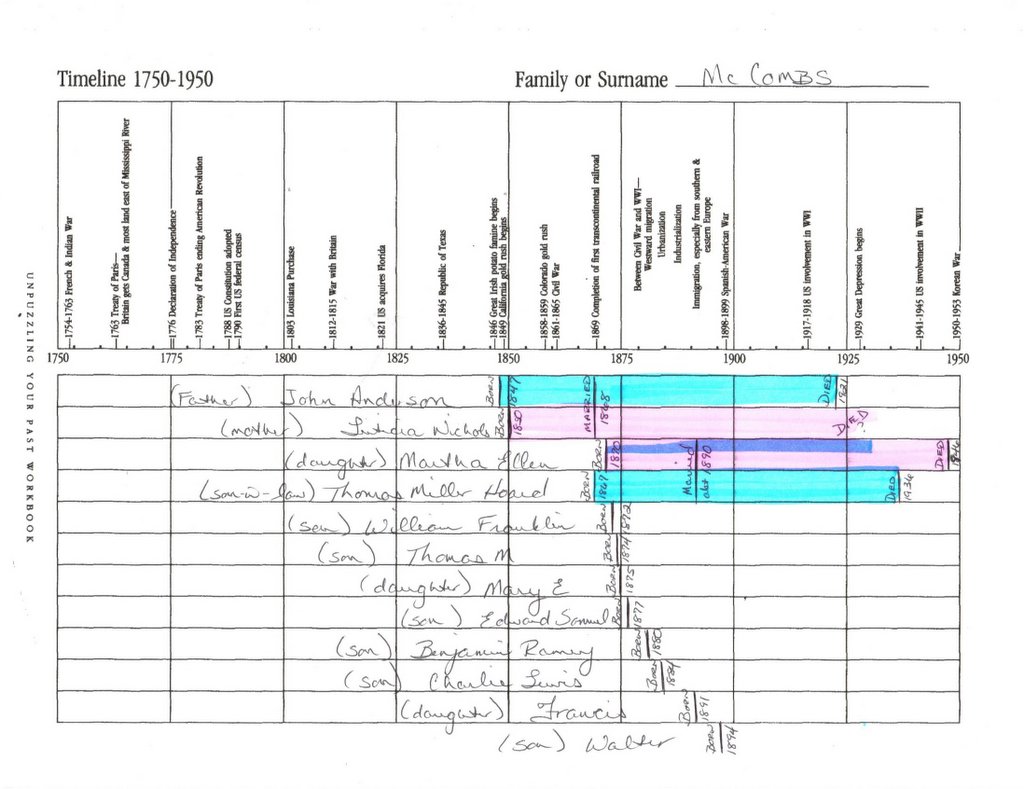 Timeline 1750-1950
Family or Surname McCombs
1754-1763 French & Indian War
1763 Treaty of Paris—
Britain gets Canada & most land east of Mississippi River
1776 Declaration of Independence
1783 Treaty of Paris ending American Revolution
1788 US Constitution adopted
1790 First US federal census
1803 Louisiana Purchase
1812-1815 War with Britain
1821 US acquires Florida
1836-1845 Republic of Texas
1846 Great Irish potato famine begins
1849 California gold rush begins
1858-1859 Colorado gold rush
1861-1865 Civil War
1869 Completion of first transcontinental railroad
Between Civil War and WWI—
Westward migration
Urbanization
Industrialization
Immigration, especially from southern &
eastern Europe
1898-1899 Spanish-American War
1917-1918 US involvement in WWI
1929 Great Depression begins
1941-1945 US involvement in WWII
1950-1953 Korean War
1750 1775 1800 1825 1850 1875 1900 1925 1950
UNPUZZLING YOUR PAST WORKBOOK
(Father) John Anderson BORN 1847 MARRIED 1868 DIED 1921
(mother) Luticia Nichols BORN 1850 DIED
(daughter) Martha Ellen BORN 1870 Married abt 1890 DIED
(son-in-law) Thomas Miller Hoard BORN 1869 DIED 1936
(son) William Franklin BORN 1872
(son) Thomas M BORN 1874
(daughter) Mary E BORN 1875
(son) Edward Samuel BORN 1877
(son) Benjamin Ramey BORN 1880
(son) Charlie Lewis BORN 1884
(daughter) Francis BORN 1891
(son) Walter BORN 1894